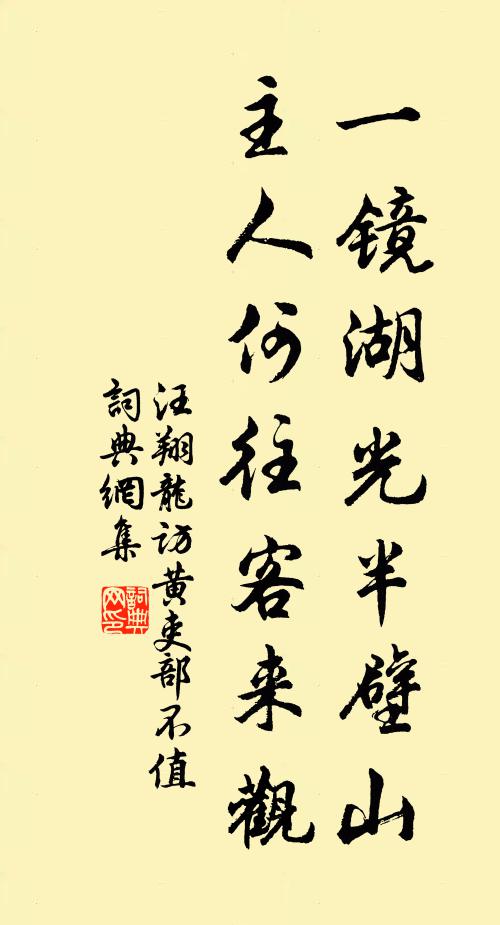 一镜湖光半壁山
主人何往客来觀
汪翔龍访黄吏部不值
詞典網集
詞典网印